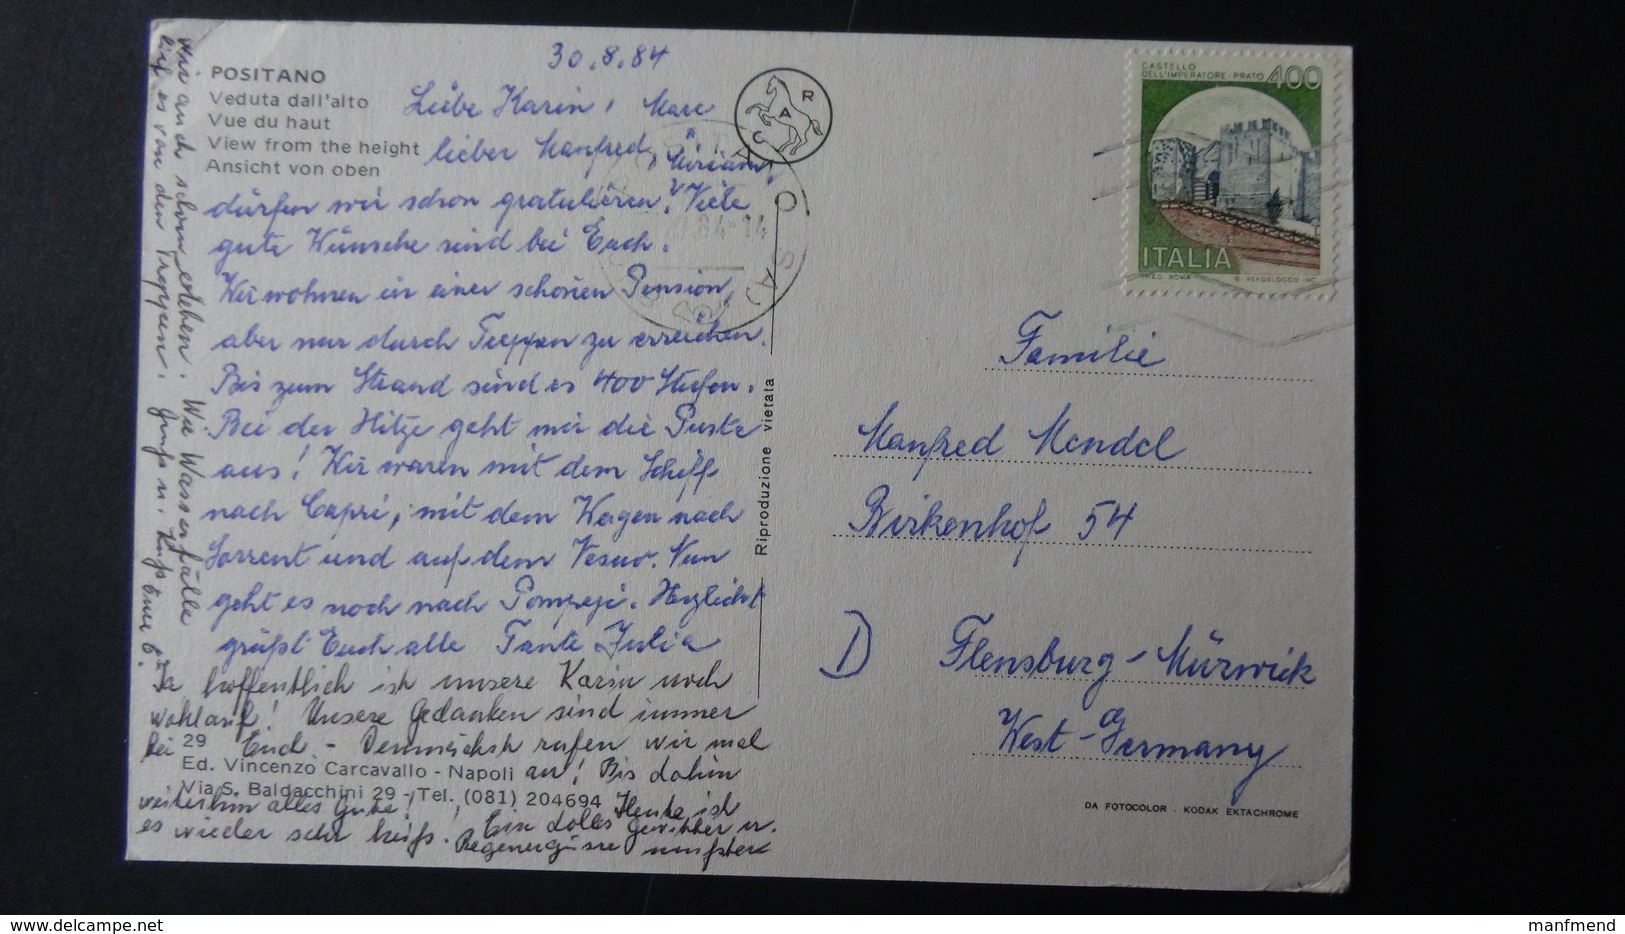 30.8.84
POSITANO
Veduta dall'alto
Vue du haut
View from the height
Ansicht von oben
Liebe Karin, Marc
lieber Manfred, "Miriam",
dürfen wir schon gratulieren? Viele
gute Wünsche sind bei Euch.
Wir wohnen in einer schönen Pension,
aber nur durch Treppen zu erreichen.
Bis zum Strand sind es 400 Stufen.
Bei der Hitze geht mir die Puste
aus! Wir waren mit dem Schiff
nach Capri, mit dem Wagen nach
Sorrent und auf dem Vesuv. Nun
geht es noch nach Pompeji. Herzlichst
grüßt Euch alle Tante Julia
Ja hoffentlich ist unsere Karin noch
wohlauf! Unsere Gedanken sind immer
bei Euch. - Demnächst rufen wir mal
an! Bis dahin
weiterhin alles Gute! Heute ist
es wieder sehr heiß. Ein dolles Gewitter u.
Regenergüsse mußten
wir auch schon erleben. Wie Wasserfälle
lief es von den Treppen. Gruß u. Kuß Eure
29
Ed. Vincenzo Carcavallo - Napoli
Via S. Baldacchini 29 - Tel. (081) 204694
Riproduzione vietata
CAR
POSITANO (SA)
84-14
CASTELLO
DELL'IMPERATORE - PRATO 400
ITALIA
I.P.Z.S. ROMA
G. VERGELOCCO INC.
Familie
Manfred Mendel
Birkenhof 54
D Flensburg-Mürwick
West-Germany
DA FOTOCOLOR - KODAK EKTACHROME
manfmend